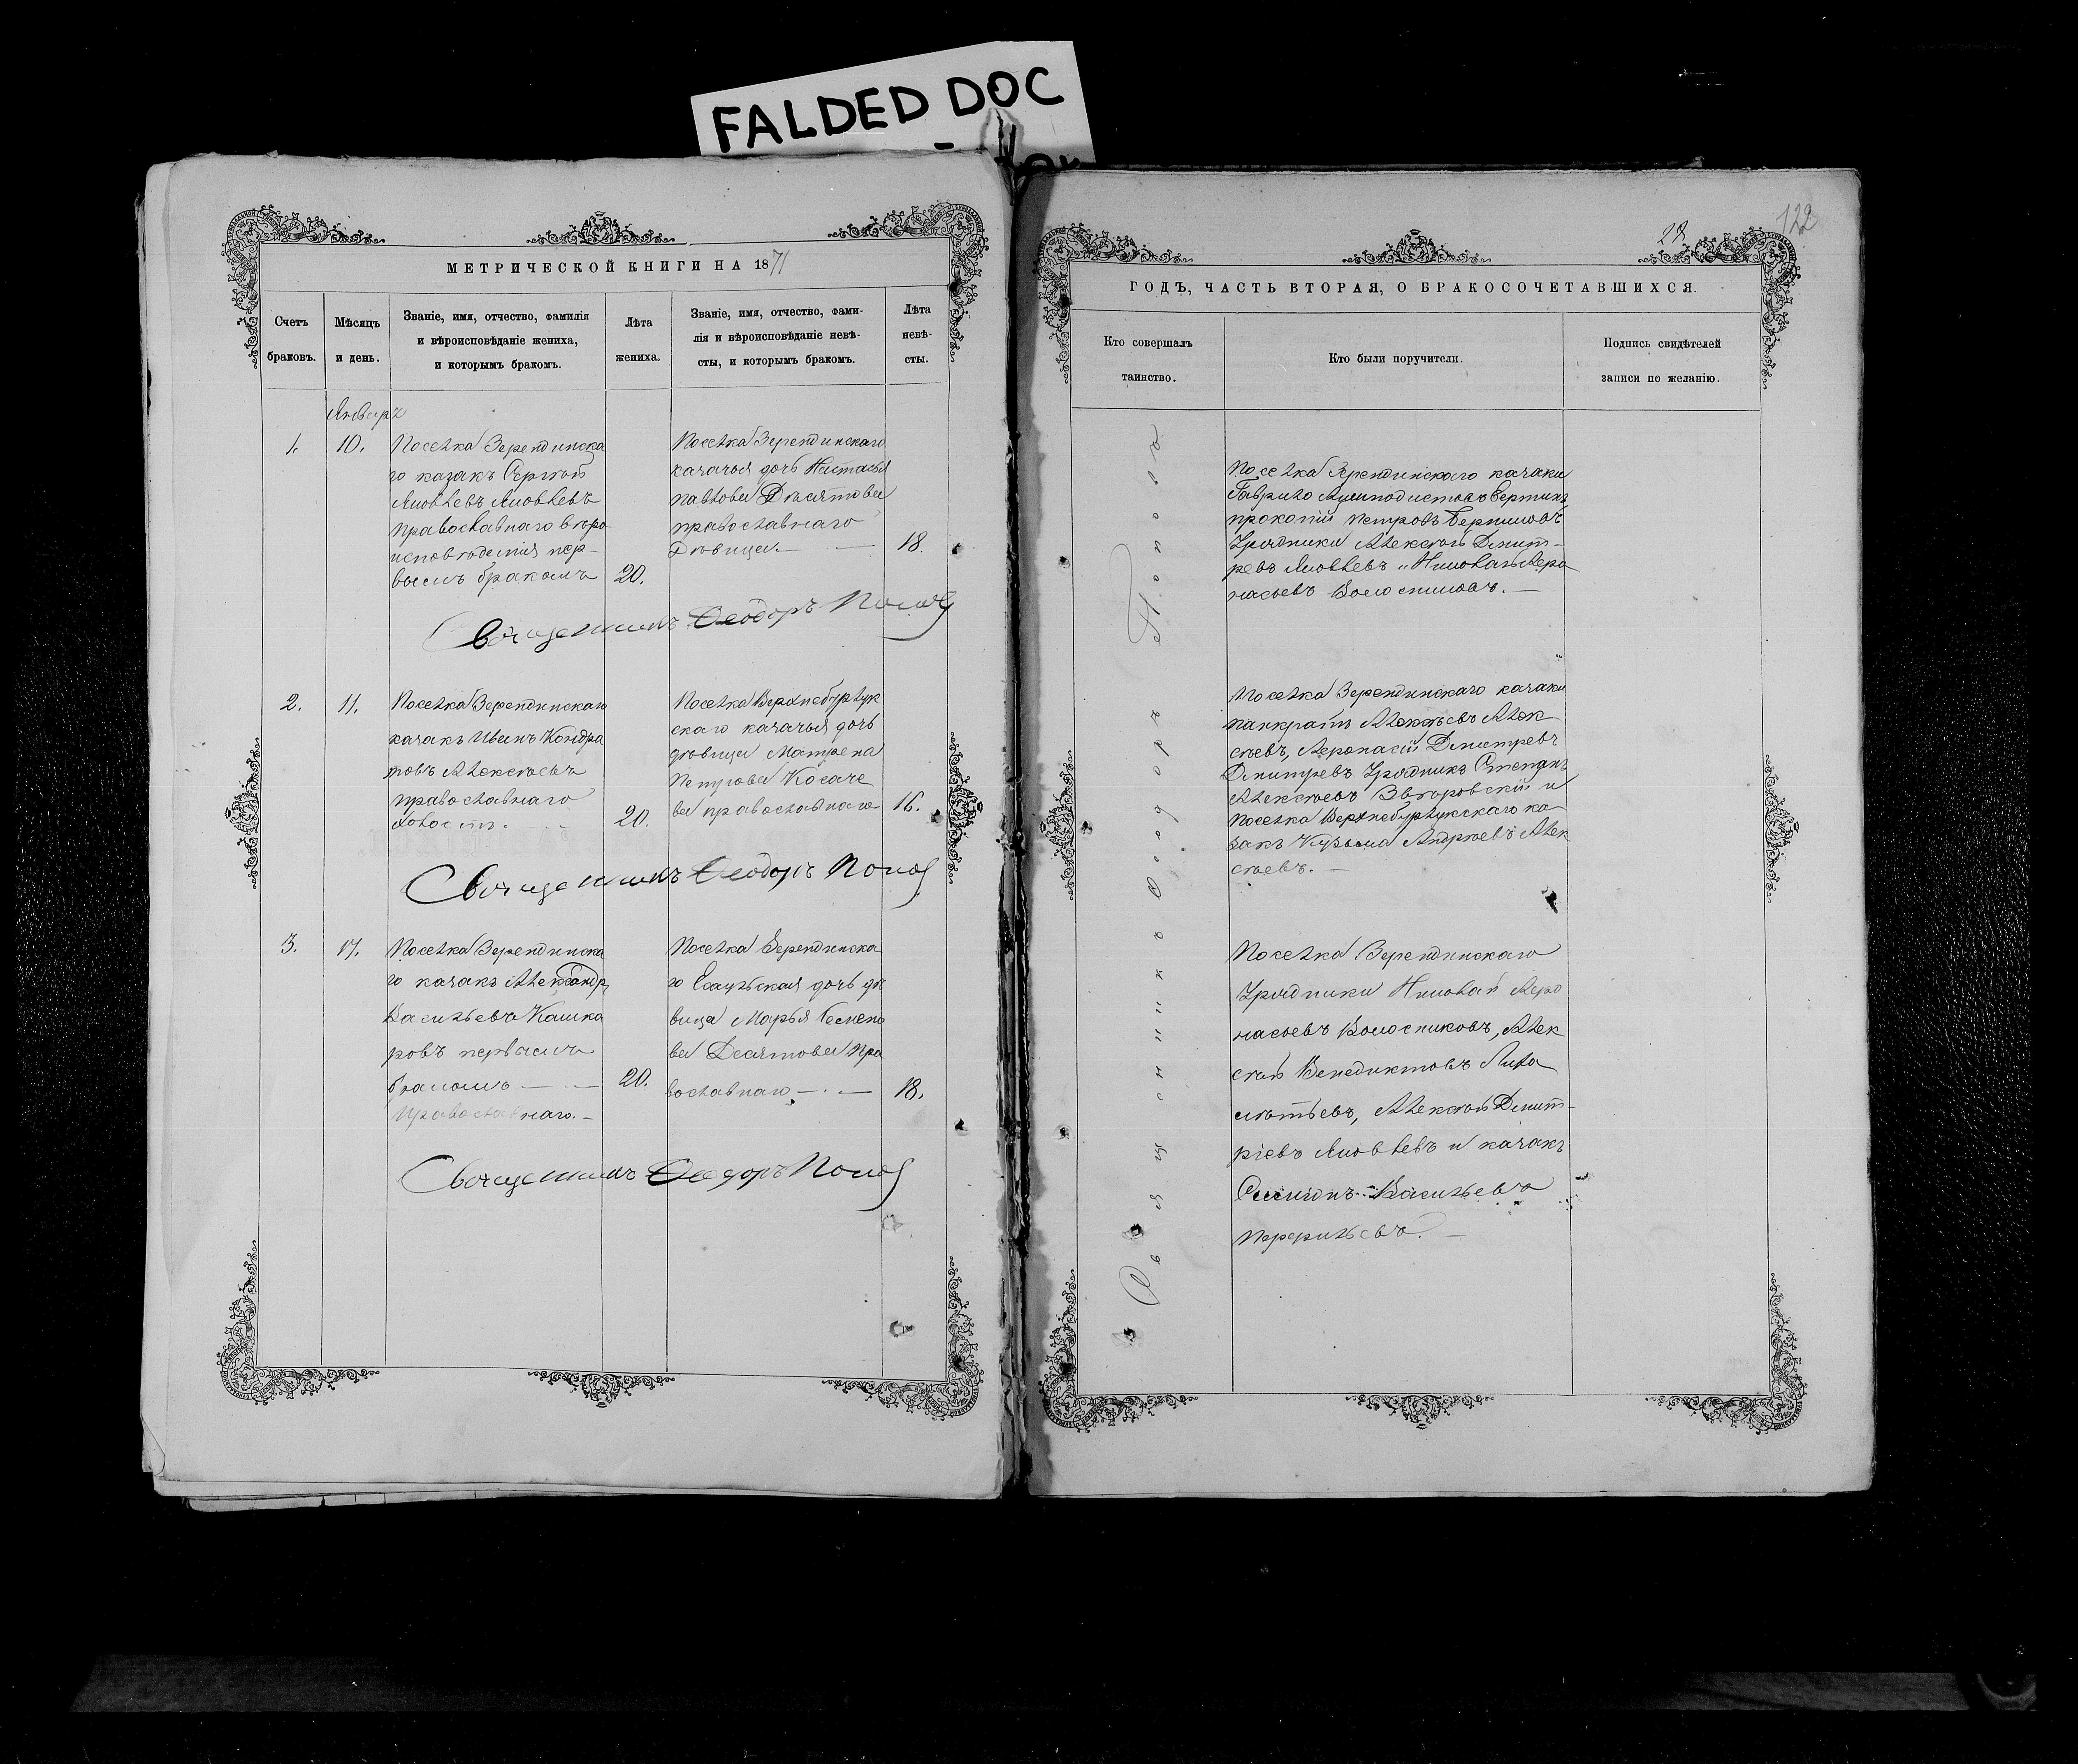 FALDED DOC
МЕТРИЧЕСКОЙ КНИГИ НА 1871
Счетъ браковъ.
Мѣсяцъ и день.
Званіе, имя, отчество, фамилія
и вѣроисповѣданіе жениха,
и которымъ бракомъ.
Лѣта жениха.
Званіе, имя, отчество, фами-
лія и вѣроисповѣданіе невѣ-
сты, и которымъ бракомъ.
Лѣта
невѣ-
сты.
Январь
1. 10.
Поселка Зерендинска
го казакъ Сергѣй
Яковлевъ Яковлевъ
православнаго вѣро
исповѣданія пер-
вымъ бракомъ 20.
Поселка Зерендинскаго
казачья дочь Настасья
Павлова Десятова
православнаго
дѣвица. 18.
Священникъ Ѳеодоръ Попов
2. 11.
Поселка Зерендинскаго
казакъ Иванъ Кондра
товъ Алексѣевъ
православнаго
холостъ. 20.
Поселка Верхнебурлук
скаго казачья дочь
дѣвица Матрена
Петрова Косаче
ва православнаго 16.
Священникъ Ѳеодоръ Попов
3. 17.
Поселка Зерендинска
го казакъ Александр
Васильевъ Кашка
ровъ первымъ
бракомъ 20.
Православнаго.
Поселка Зерендинска
го Есаульская дочь дѣ
вица Марья Семено
ва Десятова Пра
вославнаго 18.
Священникъ Ѳеодоръ Попов
122
28
ГОДЪ, ЧАСТЬ ВТОРАЯ, О БРАКОСОЧЕТАВШИХСЯ.
Кто совершалъ
таинство.
Кто были поручители.
Подпись свидѣтелей
записи по желанію.
Священникъ Ѳеодоръ Поповъ
Поселка Зерендинскаго казаки
Гаврило
Прокопій Петровъ
Урядники Алексѣй Дмит-
ревъ Яковлевъ и Николай Аѳа
насьевъ Волосниковъ.
Поселка Зерендинскаго казаки
Панкратъ Алексѣевъ Алек
сѣевъ, Аѳонасій Дмитревъ
Дмитревъ Урядникъ Степанъ
Алексѣевъ и
Поселка Верхнебурлукскаго ка
закъ Кузьма Андреевъ Алек
сѣевъ.
Поселка Зерендинскаго
Урядники Николай Аѳо
насьевъ Волосниковъ, Алек
сѣй Венедиктовъ
Алексѣй Дмит-
ріевъ Яковлевъ и казакъ
Васильевъ
Перфильевъ.